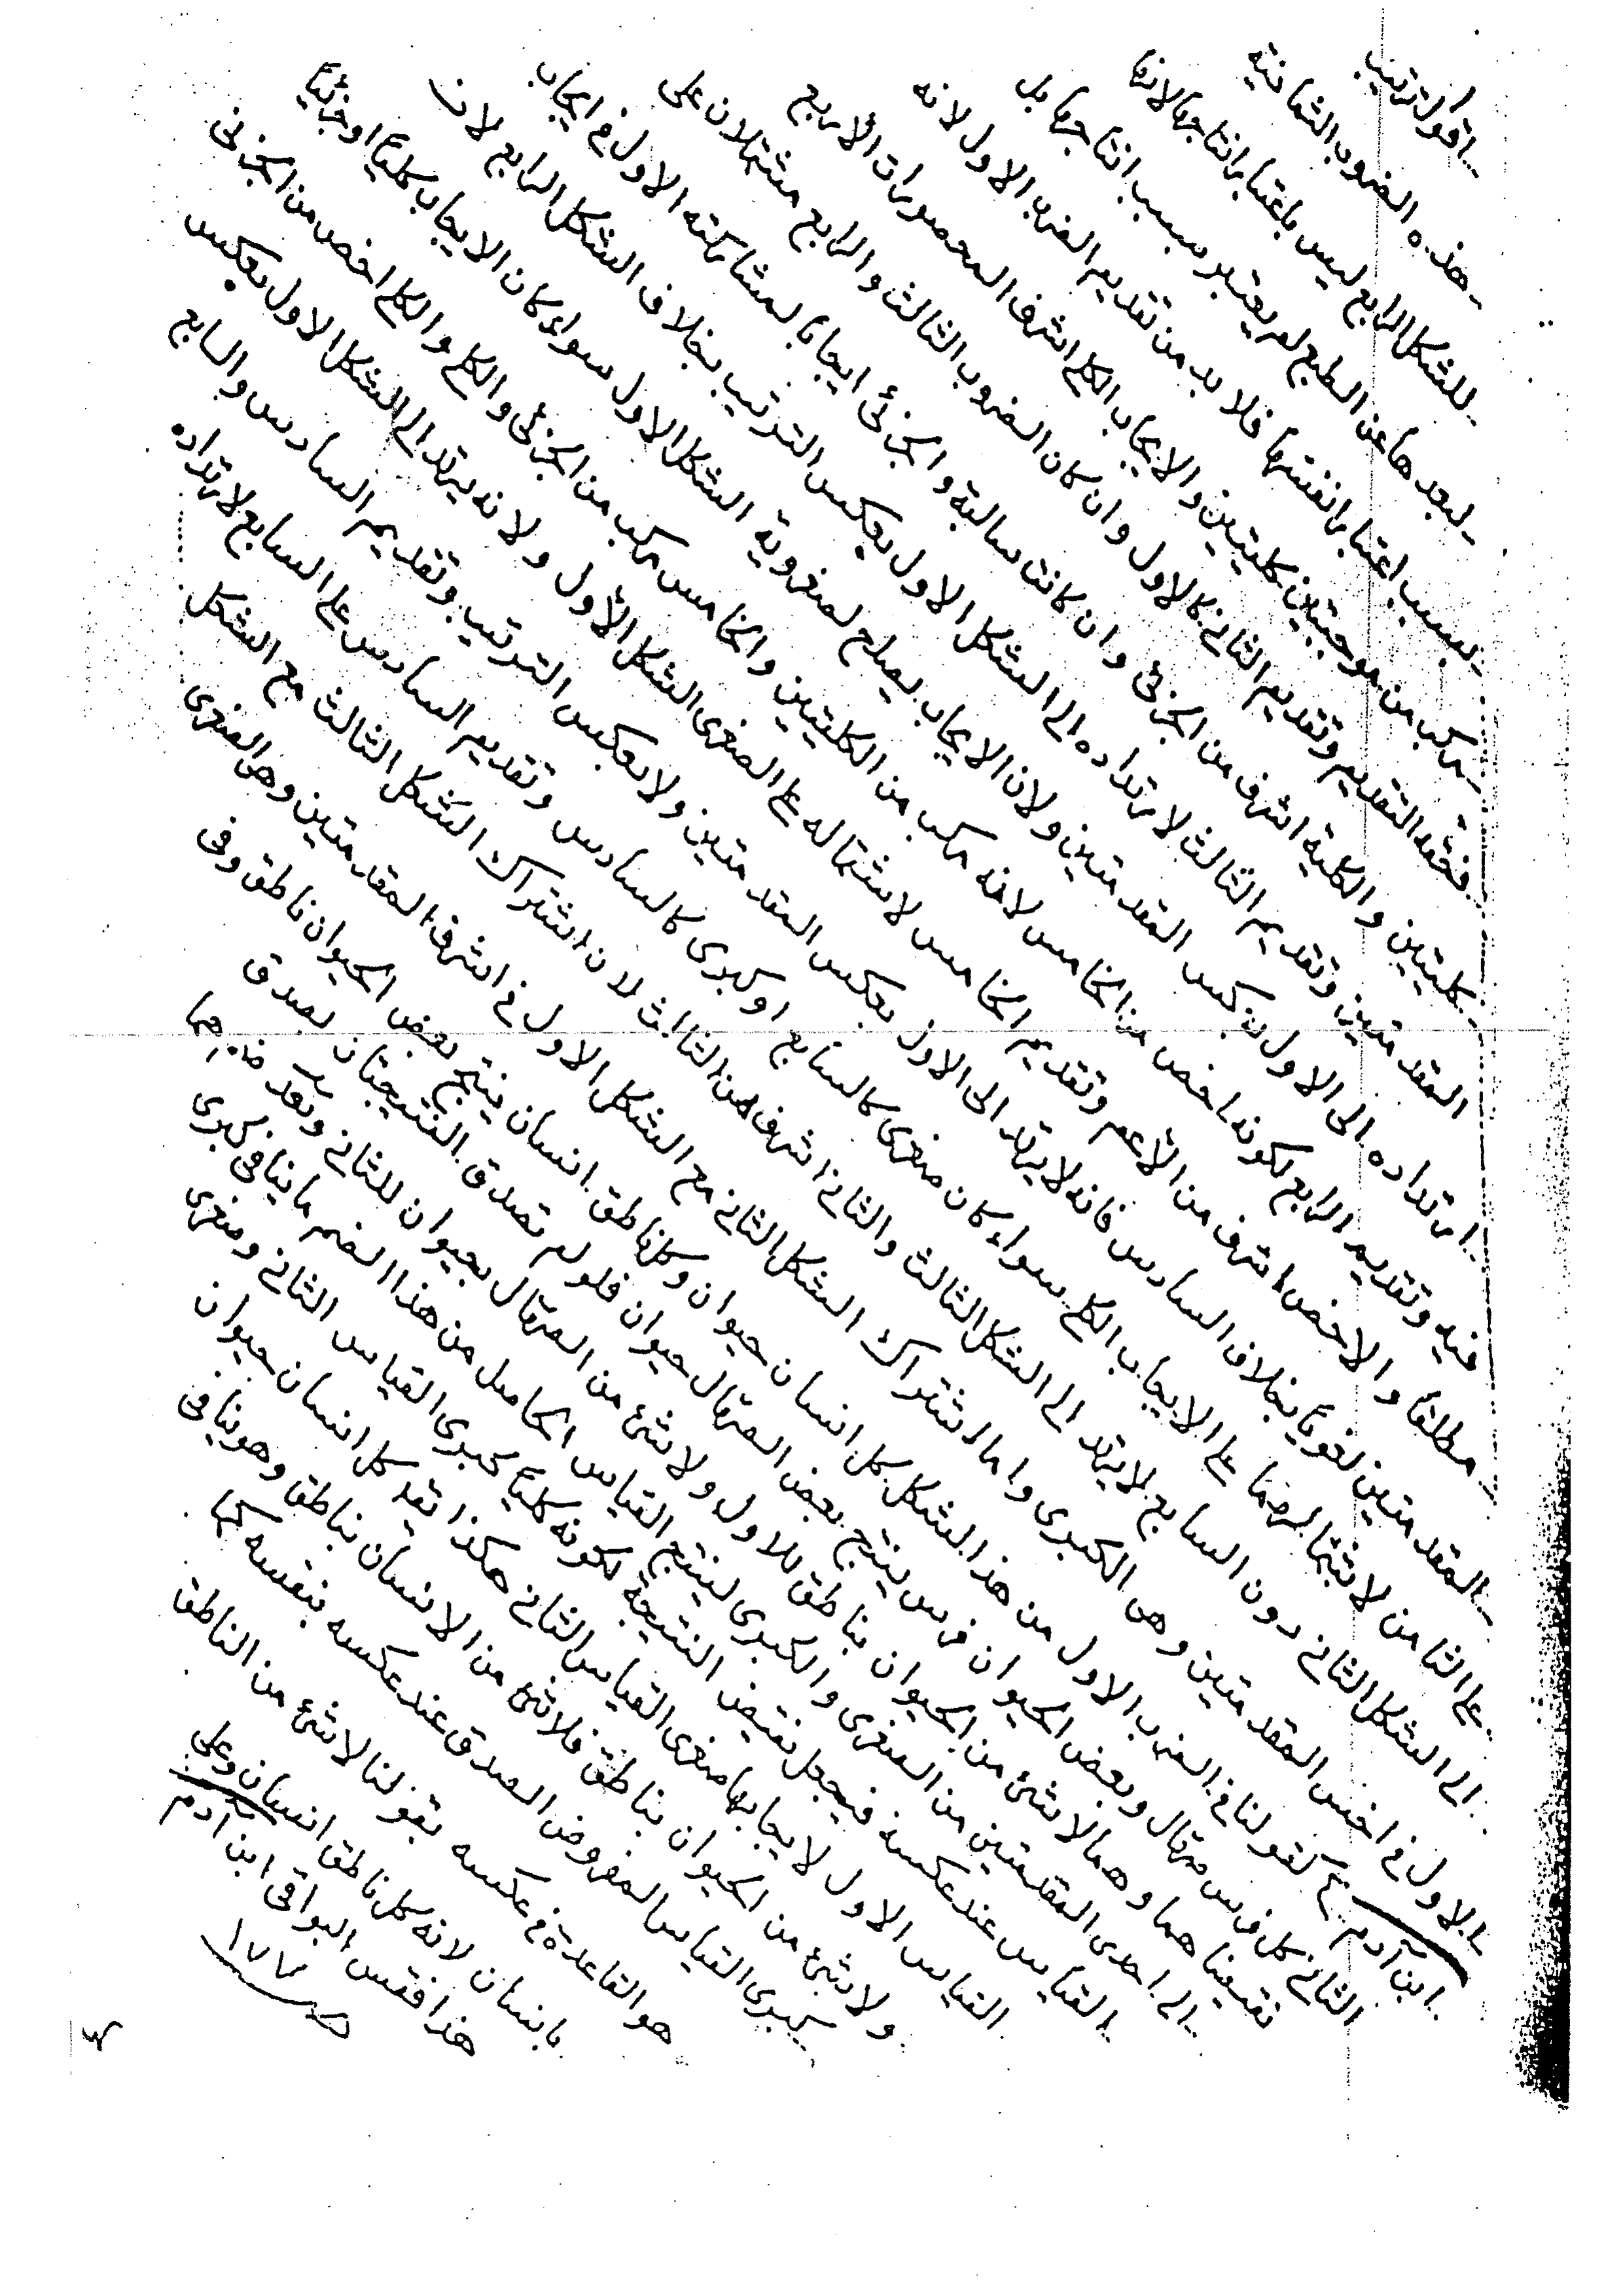 اقول ترتيب
هذه الضروب الثمانية
للشكل الرابع ليس باعتبار انتاجها لانها
لبعدها عن الطبع لم يعتبر بسبب انتاجها بل
بسبب اعتبار انفسها فلا بد من تقديم الضرب الاول لانه
مركب من موجبتين كليتين والايجاب الكلي اشرف المحصورات الاربع
فحقه التقديم وتقديم الثاني كالاول وان كان الضروب الثالث والرابع مشتملان على
كليتين والكلية اشرف من الجزئي وان كانت سالبة والجزئي ايجابا لمشاركته الاول في ايجاب
المقدمتين وتقديم الثالث لارتداده الى الشكل الاول بعكس الترتيب بخلاف الشكل الرابع لان
ارتداده الى الاول بعكس المقدمتين ولان الايجاب يصلح لصغروية الشكل الاول سواء كان الايجاب كليا او جزئيا
فيه وتقديم الرابع لكونه اخص من الخامس لانه مركب من الكليتين والخامس مركب من الجزئي والكلي والكلي اخص من الجزئي
مطلقا والاخص اشرف من الأعم وتقديم الخامس لاشتماله على الصغرى الشكل الأول ولانه يرتد الى الشكل الاول بعكس
المقدمتين لغويا بخلاف السادس فانه لا يرتد الى الاول بعكس المقدمتين ولا بعكس الترتيب وتقديم السادس والسابع
على الثامن لاشتمالهما على الايجاب الكلي سواء كان صغرى كالسابع او كبرى كالسادس وتقديم السادس على السابع لارتداده
الى الشكل الثاني دون السابع لا يرتد الى الشكل الثالث والثاني اشرف من الثالث لان اشتراك الشكل الثالث مع الشكل
الاول في اخس المقدمتين وهى الكبرى واما اشتراك الشكل الثاني مع الشكل الاول في اشرف المقدمتين وهى الصغرى
ابن آدم ع كقولنا في الضرب الاول من هذا الشكل كل انسان حيوان وكل ناطق انسان ينتج بعض الحيوان ناطق وفى
الثاني كل فرس صهال وبعض الحيوان فرس ينتج بعض الصهال حيوان فلو لم تصدق النتيجتان لصدق
نقيضاهما وهما لا شئ من الحيوان بناطق للاول ولا شئ من الصهال بحيوان للثاني وبعد ضمهما
الى احدى المقدمتين من الصغرى والكبرى لينتج القياس الحاصل من هذا الضم ما ينافى كبرى
القياس عند عكسه فيجعل نقيض النتيجة لكونه كليا كبرى القياس الثاني وصغرى
القياس الاول لايجابها صغرى القياس الثاني هكذا كل انسان حيوان
ولا شئ من الحيوان بناطق فلا شئ من الانسان بناطق وهو ينافى
كبرى القياس المفروض الصدق عند عكسه بنفسه كما
هو القاعدة في عكسه بقولنا لا شئ من الناطق
بانسان لانه كل ناطق انسان وعلى
هذا فقس البواقى ابن آدم
صـ ١٧٧